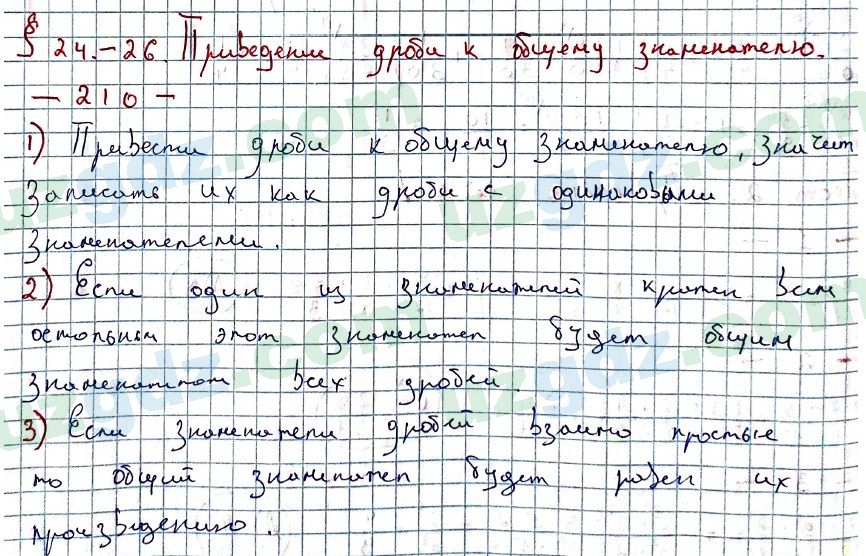 § 24.-26. Приведение дроби к общему знаменателю.
— 210 —
1) Привести дроби к общему знаменателю, значит
записать их как дроби с одинаковыми
знаменателеми.
2) Если один из знаменателей кратен всем
остольным этот знаменател будет общим
знаменателом всех дробей.
3) Если знаменатели дробей взаимо простые
то общий знаменател будет равен их
произведению.
uzgdz.com